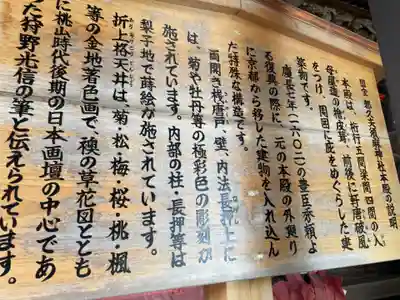 国宝 都久夫須麻神社本殿の説明
本殿は、桁行五間梁間四間の入
母屋造の檜皮葺、前後に軒唐破風
をつけ、周囲に庇をめぐらした建
築物です。
慶長七年(一六〇二)の豊臣秀頼よ
る復興の際に、元の本殿の外廻り
に京都から移した建物を入れ込ん
だ特殊な構造です。
両開き桟唐戸、壁、内法長押上に
は、菊や牡丹等の極彩色の彫刻が
施されています。内部の柱・長押等は
梨子地で蒔絵が施されています。
折上格天井は、菊・松・梅・桜・桃・楓
等の金地著色画で、襖の草花図ととも
に桃山時代後期の日本画壇の中心であ
た狩野光信の筆と伝えられています。